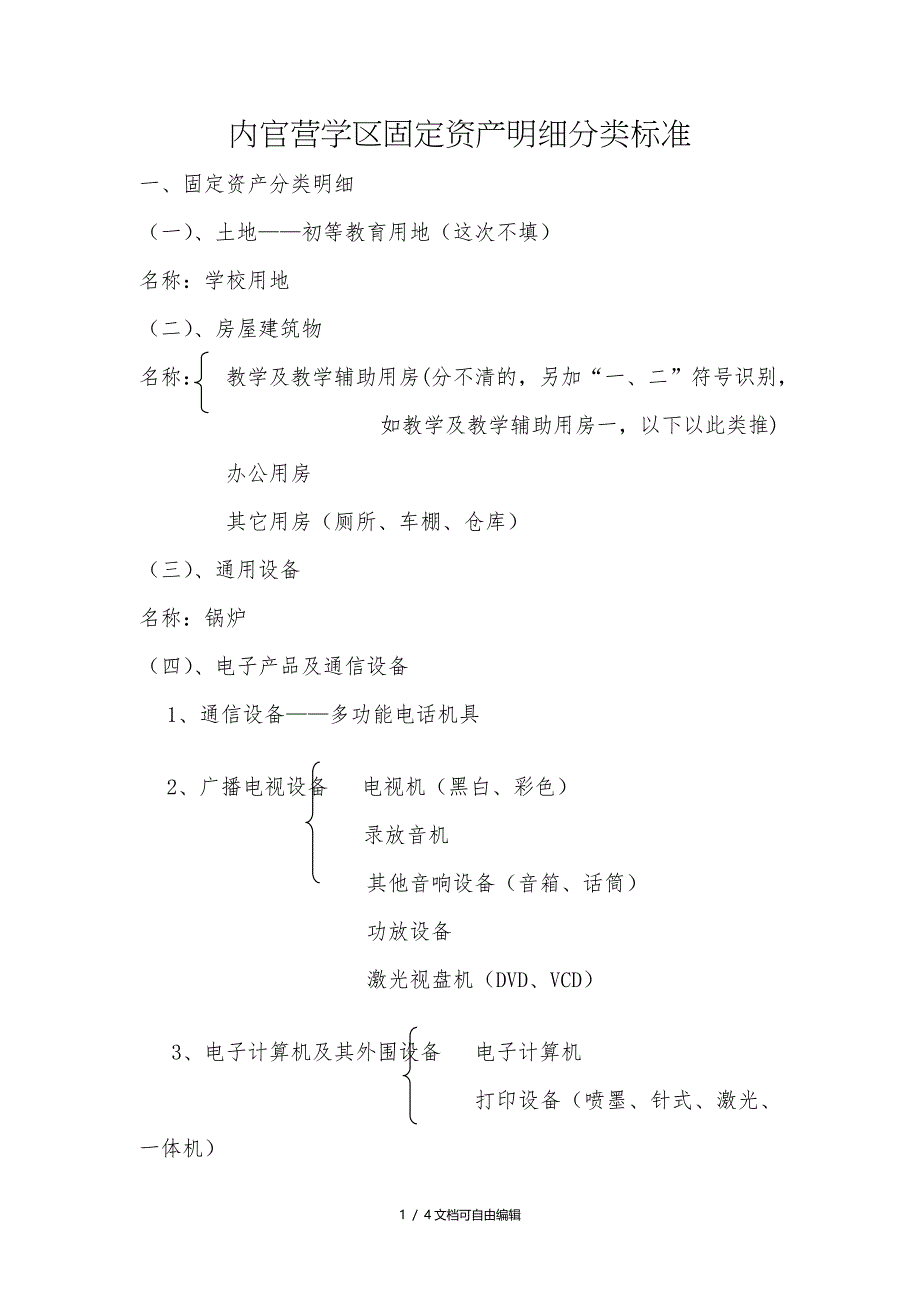 内官营学区固定资产明细分类标准
一、固定资产分类明细
（一）、土地——初等教育用地（这次不填）
名称：学校用地
（二）、房屋建筑物
名称： 教学及教学辅助用房(分不清的，另加“一、二”符号识别，
如教学及教学辅助用房一，以下以此类推)
办公用房
其它用房（厕所、车棚、仓库）
（三）、通用设备
名称：锅炉
（四）、电子产品及通信设备
1、通信设备——多功能电话机具
2、广播电视设备 电视机（黑白、彩色）
录放音机
其他音响设备（音箱、话筒）
功放设备
激光视盘机（DVD、VCD）
3、电子计算机及其外围设备 电子计算机
打印设备（喷墨、针式、激光、
一体机）
1 / 4文档可自由编辑